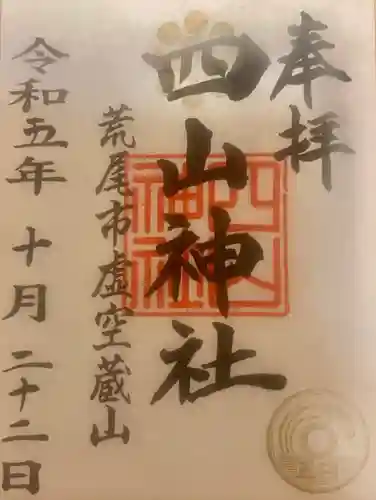 奉拝
四山神社
荒尾市虚空蔵山
令和五年 十月 二十二日
四山
神社